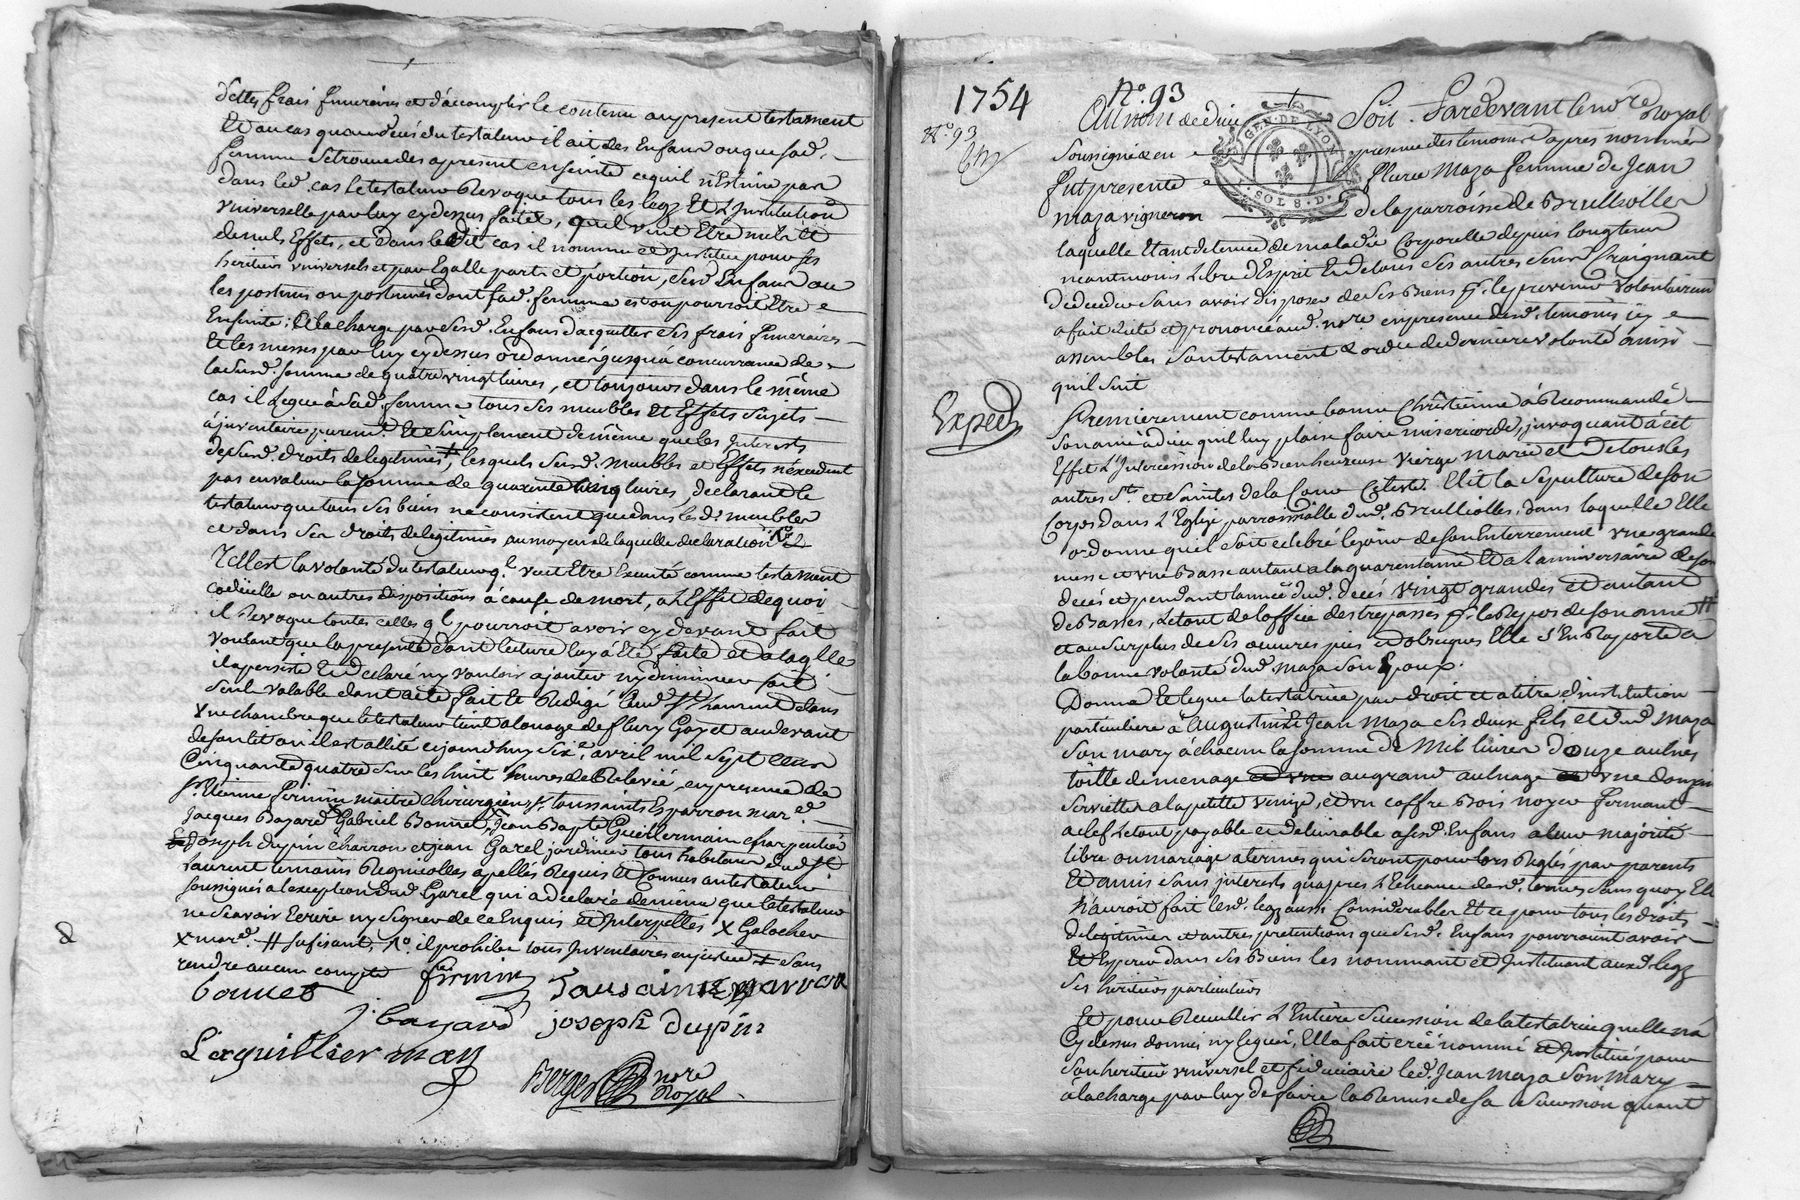 dettes frais funeraires et d'accomplir le contenu au present testament
Et au cas qu'au deces du testateur il ait des Enfans ou que sad.
femme se trouve des apresent enseinte ce quil n'Estime pas
dans led. cas Le testateur Revoque tous les legz Et L'Institution
Universelle par luy cy dessus faite, quil veut Etre nuls Et
de nuls Effets, et dans ledit cas il nomme et Institue pour ses
heritiers universels et par Egalle part et portion, sesd. Enfans ou
les postumes ou postumes dont sad. femme est ou pourroit Etre
Enseinte; A la charge par sesd. Enfans d'acquitter ses frais funeraires
Et les messes par luy cy dessus ordonnées jusqua concurrance de
la susd. somme de quatre vingt livres, et toujours dans le même
cas il Legue à sad. femme tous ses meubles Et Effets sujets
à inventaire purem.t Et simplement de même que les Interests
de susd. droits de legitimes, lesquels susd. meubles et Effets n'excedent
pas en valeur la somme de quarente cinq livres, declarant le
testateur que tous ses biens ne consistent que dans lesd.s meubles
et dans ses droits de legitimes au moyen de laquelle declaration N.o
Telle est la volonté du testateur q.l veut Etre Executé comme testament
codicille ou autres dispositions à cause de mort, a L'Effet de quoi
il Revoque toutes celles q.l pourroit avoir cy devant fait
voulant que la presente dont lecture luy à Eté faite et a laq.lle
il a persisté Et declaré ny vouloir ajouter ny diminuer soit
seule valable dont acte fait Et Redigé aud. St. Laurent dans
Une chambre que le testateur tient a louage de fleury Gayet au devant
de son lit ou il est allité cejourd'huy six.e avril mil sept cens
Cinquante quatre sur les huit heures de Relevée, en presence de
s.r Etienne firmin maitre chirurgien, s.r toussaints Esparron mar.d
Jacques Bayard Gabriel Bonnet, Jean Bapt.e Gueillermain charpentier
Joseph dupin charron et jean Garel jardinier tous habitans dud. St.
Laurent temoins Regnicolles apellés Requis Et Connus au testateur
soussignés a l'exception dud. Garel qui a declaré de même que le testateur
ne sçavoir Ecrire ny signer de ce Enquis et Interpellés X Galocher
X mar.d # sufisant. N.o il prohibe tous Inventaires en justice sans
rendre aucun compte
bonnet firmin Tousaint
J. bayard joseph dupin
Berger no.re Royal
1754
N.o 93
N.o 93
Au nom de Dieu Soit. Pardevant le no.re Royal
Soussigné & en presence des temoins cy apres nommés
fut presente Maza femme de Jean
Maza vigneron de la parroisse de Brulliolle
laquelle Etant detenue de maladie Corporelle depuis longtems
neantmoins Libre d'Esprit En de tous ses autres sens Craignant
de deceder sans avoir disposer de ses Biens p.r le prevenir volontairem.t
a fait dicté et prononcé aud. no.re en presence desd. temoins icy
assembles son testament & ordre de derniere volonté ainsi
quil suit
Exped.
Premierement comme bonne Chrêtienne à Recommandé
son ame à dieu quil luy plaise faire misericorde, invoquant à cet
Effet L'Intercession de la Bienheureuse Vierge Marie et De tous les
autres S.ts et Saintes de la Cour Celeste. Elit la sepulture de son
Corps dans L'Eglise parroissialle dud. Brulliolles, dans laquelle Elle
ordonne quil soit celebré le jour de son Enterrement une grande
messe et une Basse autant a la quarentaine Et a L'anniversaire de son
decés et pendant l'année dud. decés vingt grandes et autant
de Basses, Le tout de l'office des trepassés p.r le Repos de son ame #
et au surplus de ses oeuvres pies et obseques Elle s'En Raporte a
la bonne volonté dud. Maza son Epoux.
Donne Et legue la testatrice par droit et a titre d'institution
particuliere à Augustin Et Jean Maza ses deux fils et dud. Maza
son mary à chacun la somme de Mil livres Douze aulnes
toille de menage au grand aulnage une douzain
serviettes a la petitte Venize, et un coffre Bois noyer fermant
a clef Le tout payable et delivrable a sesd. Enfans a leur majorité
libre ou mariage a termes qui seront pour lors Reglés par parents
Et amis sans interests qu'apres L'Echeance desd. termes sans quoy Elle
N'auroit fait lesd. legz aussi Considerables Et ce pour tous les droits
de legitimes et autres pretentions que sesd. Enfans pourroient avoir
Et Esperer dans ses Biens les nommant et Instituant auxd. legz
ses heritiers particuliers
Et pour Recueillir L'Entiere succession de la testatrice qu'elle n'a
Cy dessus donnés ny legués, Ella fait créé nommé et Institué pour
son heritier universel et fiduciaire led. Jean Maza son Mary
à la charge par luy de faire la Remise de sa succession quant